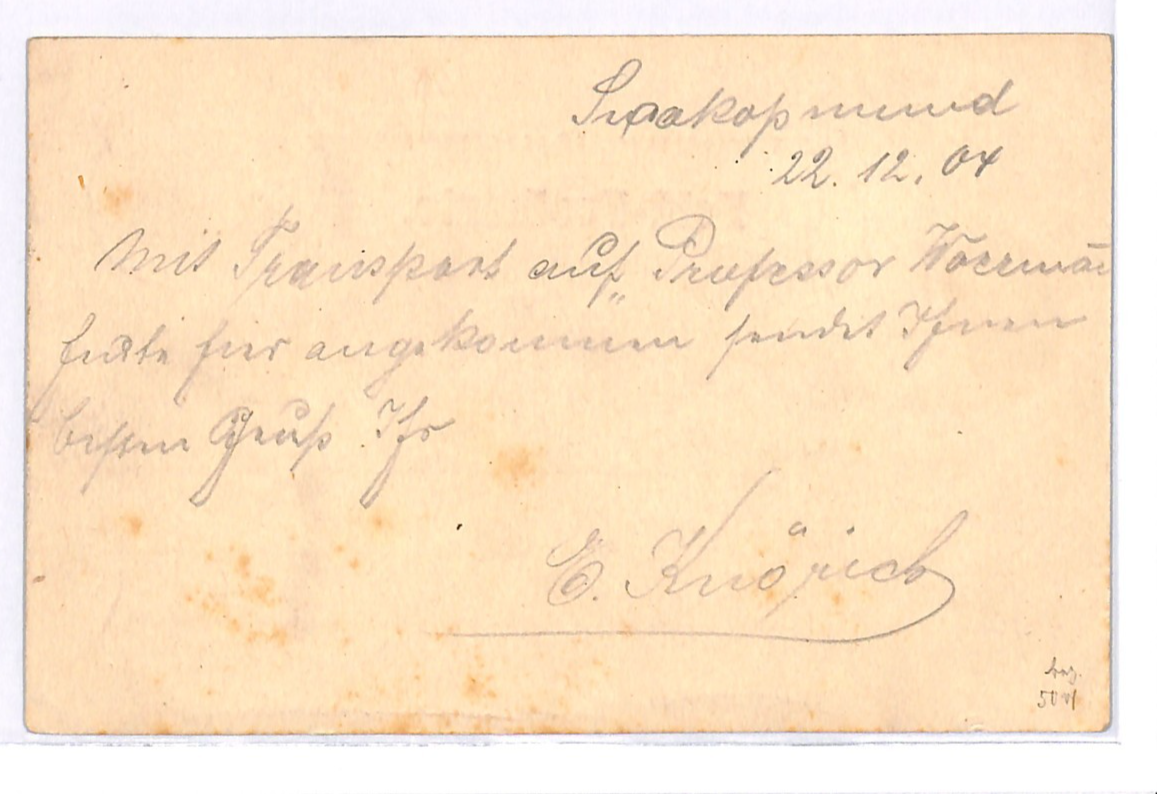 Swakopmund
22. 12. 04
Mit Transport auf „Professor Woermañ
heute hier angekommen sendet Ihnen
besten Gruß Ihr
E. Knörich